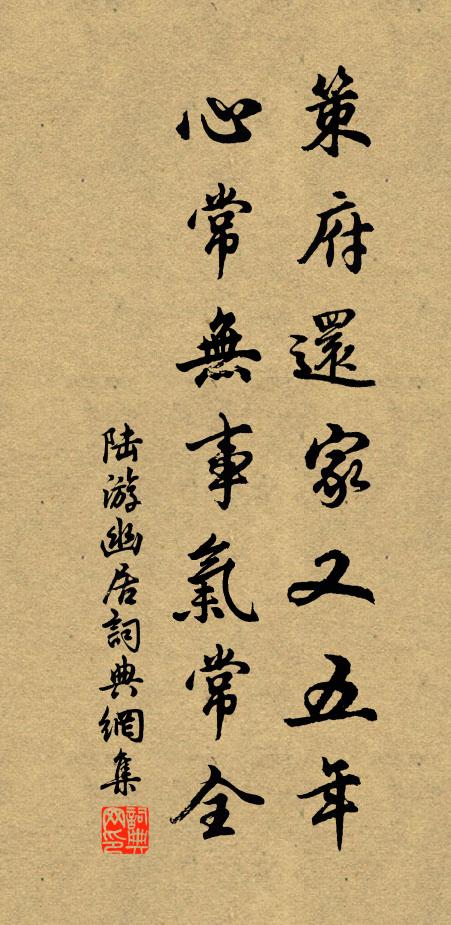 策府還家又五年
心常無事氣常全
陆游幽居詞典網集
詞典网印